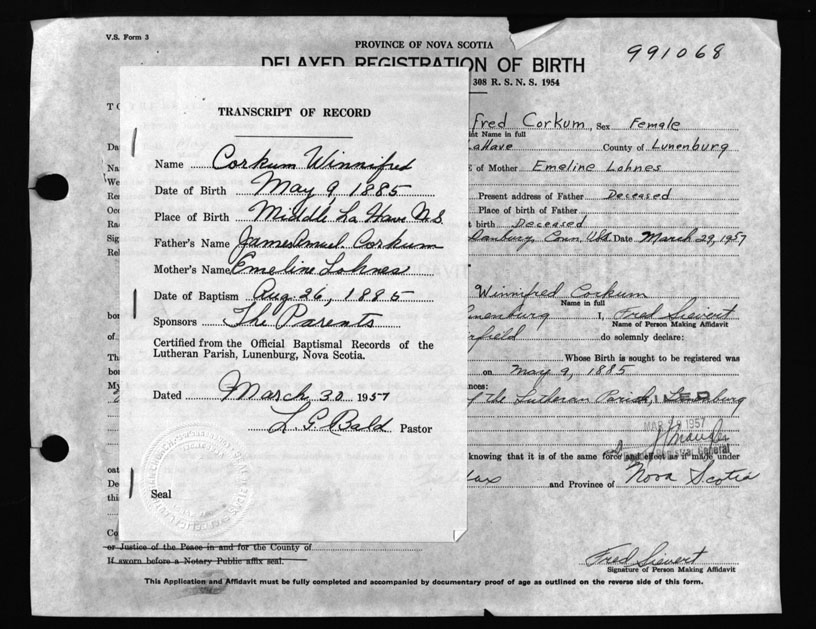 V.S. Form 3
PROVINCE OF NOVA SCOTIA
991068
DELAYED REGISTRATION OF BIRTH
308 R. S. N. S. 1954
TRANSCRIPT OF RECORD
Name Corkum Winnifred
Date of Birth May 9, 1885
Place of Birth Middle La Have N.S.
Father's Name Corkum
Mother's Name Emeline Lohnes
Date of Baptism Aug. 26, 1885
Sponsors The Parents
Certified from the Official Baptismal Records of the
Lutheran Parish, Lunenburg, Nova Scotia.
Dated March 30 1957
L. G. Bald Pastor
Seal
fred Corkum, Sex Female
nt Name in full
LaHave County of Lunenburg
of Mother Emeline Lohnes
Present address of Father Deceased
Place of birth of Father
t birth Deceased
Danbury, Conn, Date March 29, 1957
Winnifred Corkum
Name in full
I, Fred Sievert
Name of Person Making Affidavit
do solemnly declare:
Whose Birth is sought to be registered was
on May 9, 1885
nces:
of the Lutheran Parish, Lunenburg
1957
knowing that it is of the same force and effect as if made under
and Province of Nova Scotia
or Justice of the Peace in and for the County of
If sworn before a Notary Public affix seal.
Fred Sievert
Signature of Person Making Affidavit
This Application and Affidavit must be fully completed and accompanied by documentary proof of age as outlined on the reverse side of this form.